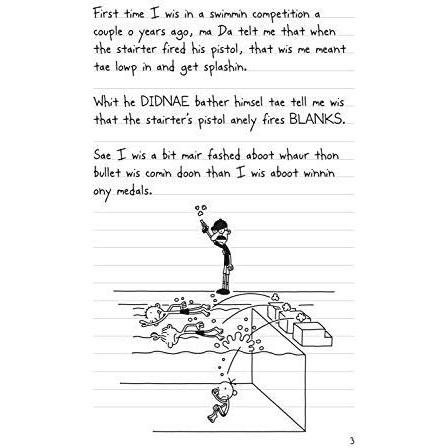 First time I wis in a swimmin competition a
couple o years ago, ma Da telt me that when
the stairter fired his pistol, that wis me meant
tae lowp in and get splashin.
Whit he DIDNAE bather himsel tae tell me wis
that the stairter's pistol anely fires BLANKS.
Sae I wis a bit mair fashed aboot whaur thon
bullet wis comin doon than I wis aboot winnin
ony medals.
3